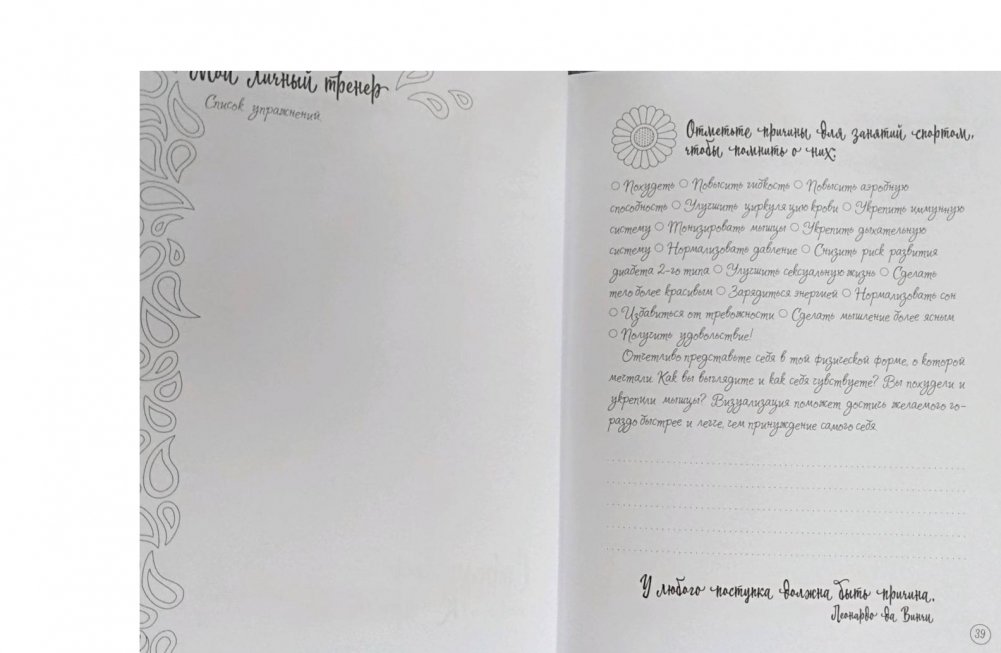 Мой личный тренер
Список упражнений
Отметьте причины для занятий спортом,
чтобы помнить о них:
○ Похудеть ○ Повысить гибкость ○ Повысить аэробную
способность ○ Улучшить циркуляцию крови ○ Укрепить иммунную
систему ○ Тонизировать мышцы ○ Укрепить дыхательную
систему ○ Нормализовать давление ○ Снизить риск развития
диабета 2-го типа ○ Улучшить сексуальную жизнь ○ Сделать
тело более красивым ○ Зарядиться энергией ○ Нормализовать сон
○ Избавиться от тревожности ○ Сделать мышление более ясным
○ Получить удовольствие!
Отчетливо представьте себя в той физической форме, о которой
мечтали. Как вы выглядите и как себя чувствуете? Вы похудели и
укрепили мышцы? Визуализация поможет достичь желаемого го-
раздо быстрее и легче, чем принуждение самого себя.
У любого поступка должна быть причина.
Леонардо да Винчи
39